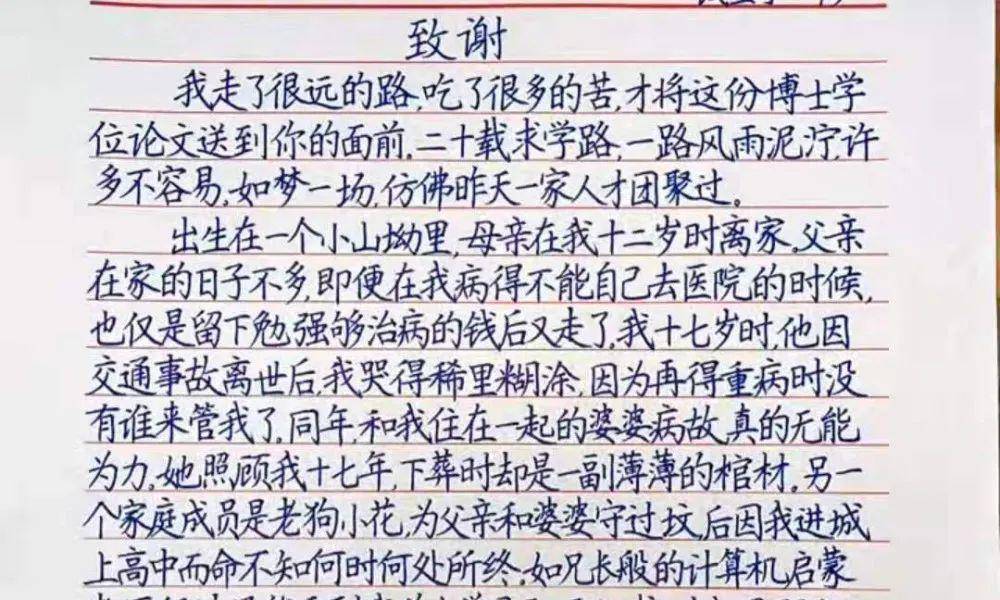 致谢
我走了很远的路,吃了很多的苦,才将这份博士学
位论文送到你的面前,二十载求学路,一路风雨泥泞,许
多不容易,如梦一场,仿佛昨天一家人才团聚过。
出生在一个小山坳里,母亲在我十二岁时离家。父亲
在家的日子不多,即便在我病得不能自己去医院的时候,
也仅是留下勉强够治病的钱后又走了,我十七岁时,他因
交通事故离世后,我哭得稀里糊涂,因为再得重病时没
有谁来管我了,同年,和我住在一起的婆婆病故,真的无能
为力,她照顾我十七年,下葬时却是一副薄薄的棺材。另一
个家庭成员是老狗小花,为父亲和婆婆守过坟,后因我进城
上高中而命不知何时何处所终,如兄长般的计算机启蒙